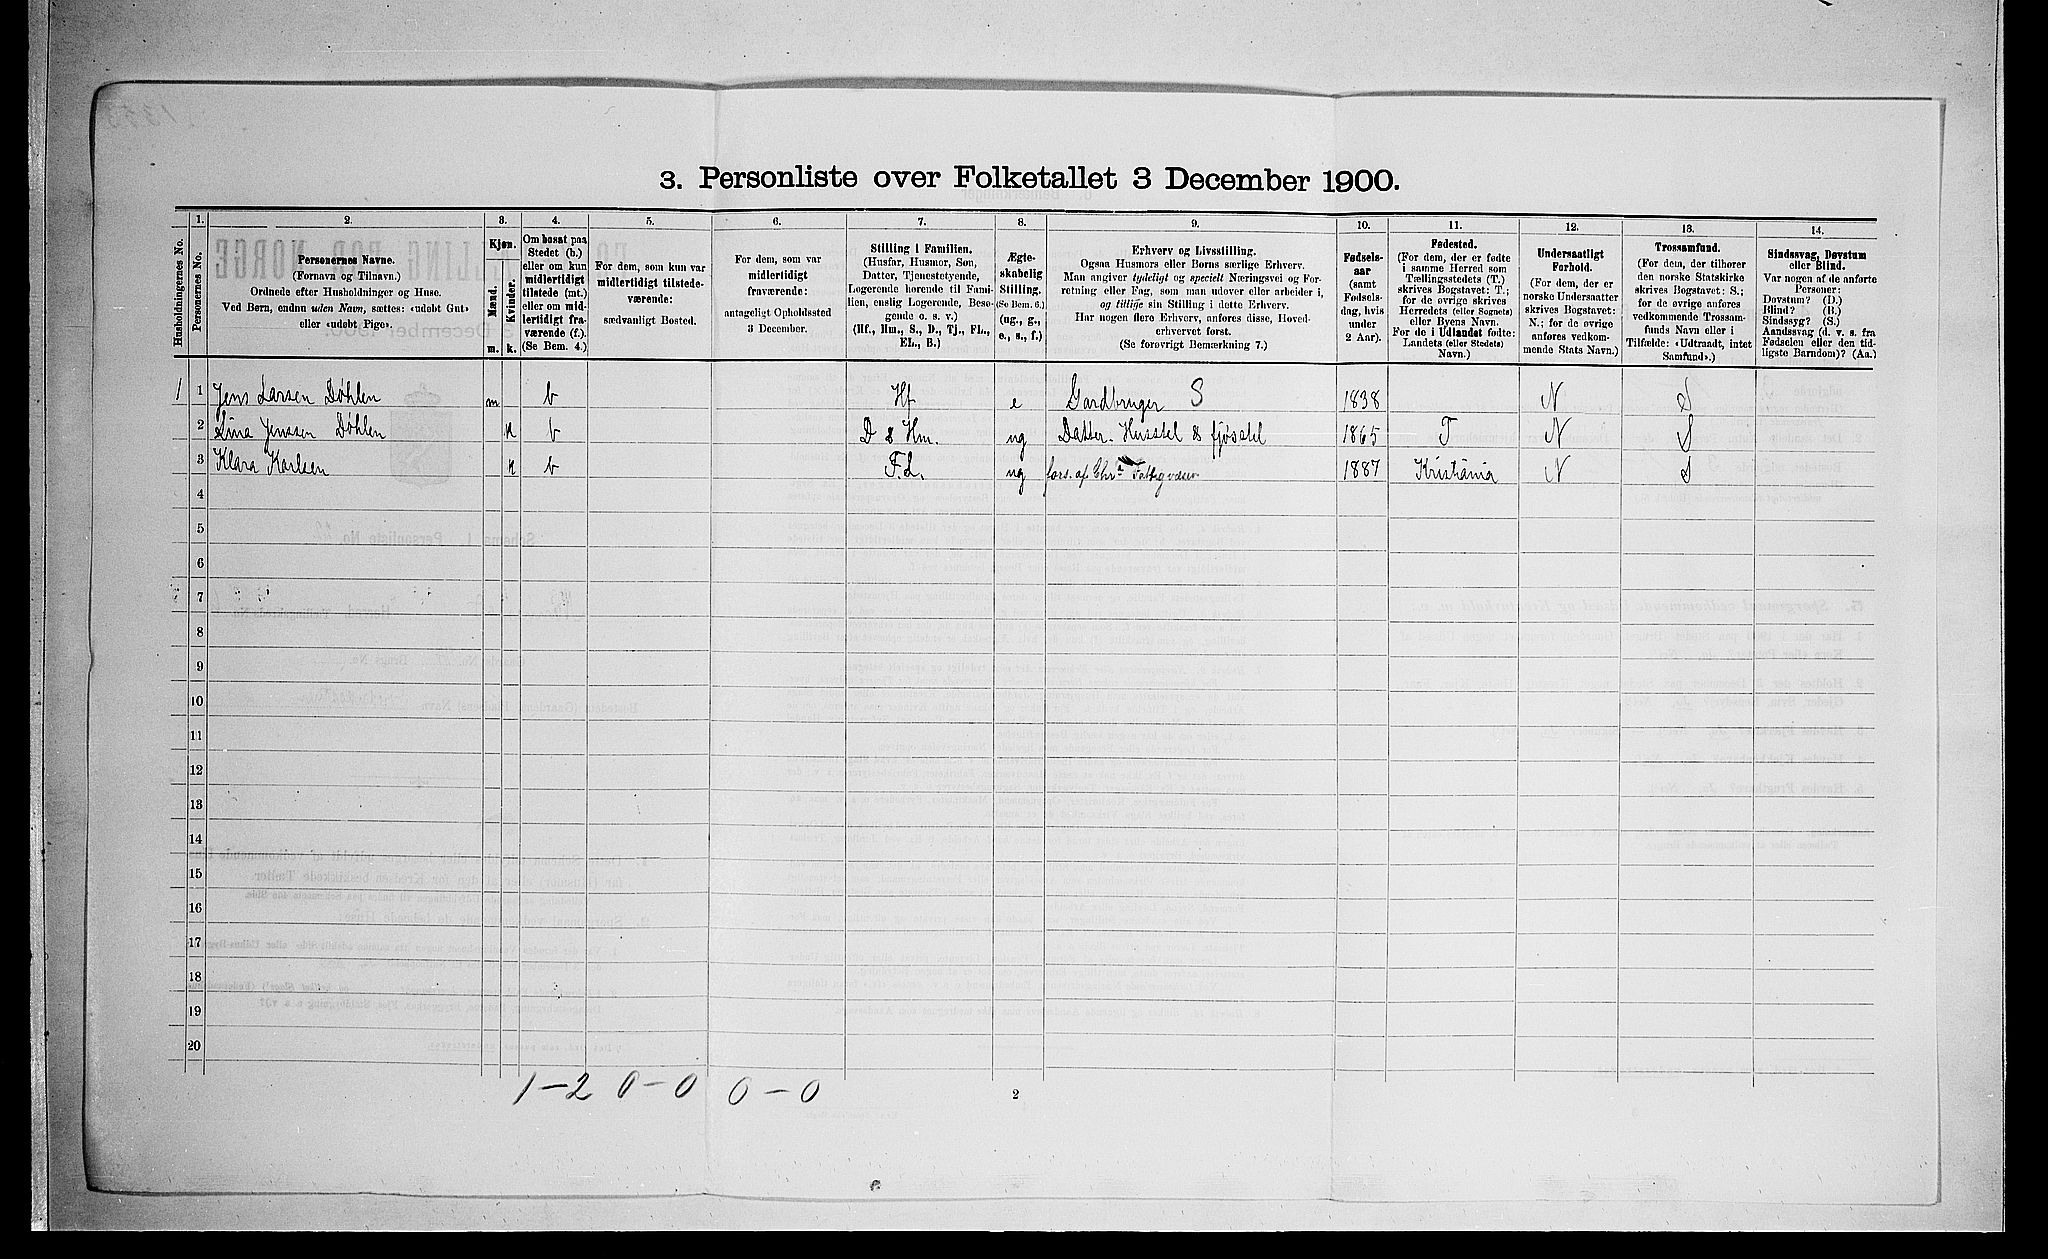 3. Personliste over Folketallet 3 December 1900.
1. 2. 3. 4. 5. 6. 7. 8. 9. 10. 11. 12. 13. 14.
Husholdningernes No.
Personernes No.
Personernes Navne.
(Fornavn og Tilnavn.)
Ordnede efter Husholdninger og Huse.
Ved Børn, endnu uden Navn, sættes: «udøbt Gut»
eller «udøbt Pige».
Kjøn.
Mænd.
Kvinder.
m. k.
Om bosat paa
Stedet (b.)
eller om kun
midlertidigt
tilstede (mt.)
eller om mid-
lertidigt fra-
værende (f.).
(Se Bem. 4.)
For dem, som kun var
midlertidigt tilstede-
værende:
sædvanligt Bosted.
For dem, som var
midlertidigt
fraværende:
antageligt Opholdssted
3 December.
Stilling i Familien.
(Husfar, Husmor, Søn,
Datter, Tjenestetyende,
Logerende hørende til Fami-
lien, enslig Logerende, Besø-
gende o. s. v.)
(Hf., Hm., S., D., Tj., FL.,
EL., B.)
Ægte-
skabelig
Stilling.
(Se Bem. 6.)
(ug., g.,
e., s., f.)
Erhverv og Livsstilling.
Ogsaa Husmors eller Børns særlige Erhverv.
Man angiver tydeligt og specielt Næringsvei og For-
retning eller Fag, som man udøver eller arbeider i,
og tillige sin Stilling i dette Erhverv.
Har nogen flere Erhverv, anføres disse, Hoved-
erhvervet først.
(Se forøvrigt Bemærkning 7.)
Fødsels-
aar
(samt
Fødsels-
dag, hvis
under
2 Aar).
Fødested.
(For dem, der er fødte
i samme Herred som
Tællingsstedets (T.)
skrives Bogstavet: T.;
for de øvrige skrives
Herredets (eller Sognets)
eller Byens Navn.
For de i Udlandet fødte:
Landets (eller Stedets)
Navn.)
Undersaatligt
Forhold.
(For dem, der er
norske Undersaatter
skrives Bogstavet:
N.; for de øvrige
anføres vedkom-
mende Stats Navn.)
Trossamfund.
(For dem, der tilhører
den norske Statskirke
skrives Bogstavet: S.;
for de øvrige anføres
vedkommende Trossam-
funds Navn eller i
Tilfælde: «Udtraadt, intet
Samfund».)
Sindssvag, Døvstum
eller Blind.
Var nogen af de anførte
Personer:
Døvstum? (D.)
Blind? (B.)
Sindssyg? (S.)
Aandssvag (d. v. s. fra
Fødselen eller den tid-
ligste Barndom)? (Aa.)
1 1 Jens Larsen Døhlen m b Hf e Gardbruger S 1838 N S
2 Lina Jenssen Døhlen k b D & Hm. ug Datter. Husstel & fjøsstel 1865 T N S
3 Klara Karlsen k b F.L. ug fors. af Chr.a Fattigvæsen 1887 Kristiania N S
4
5
6
7
8
9
10
11
12
13
14
15
16
17
18
19
20
1-2 0-0 0-0
2